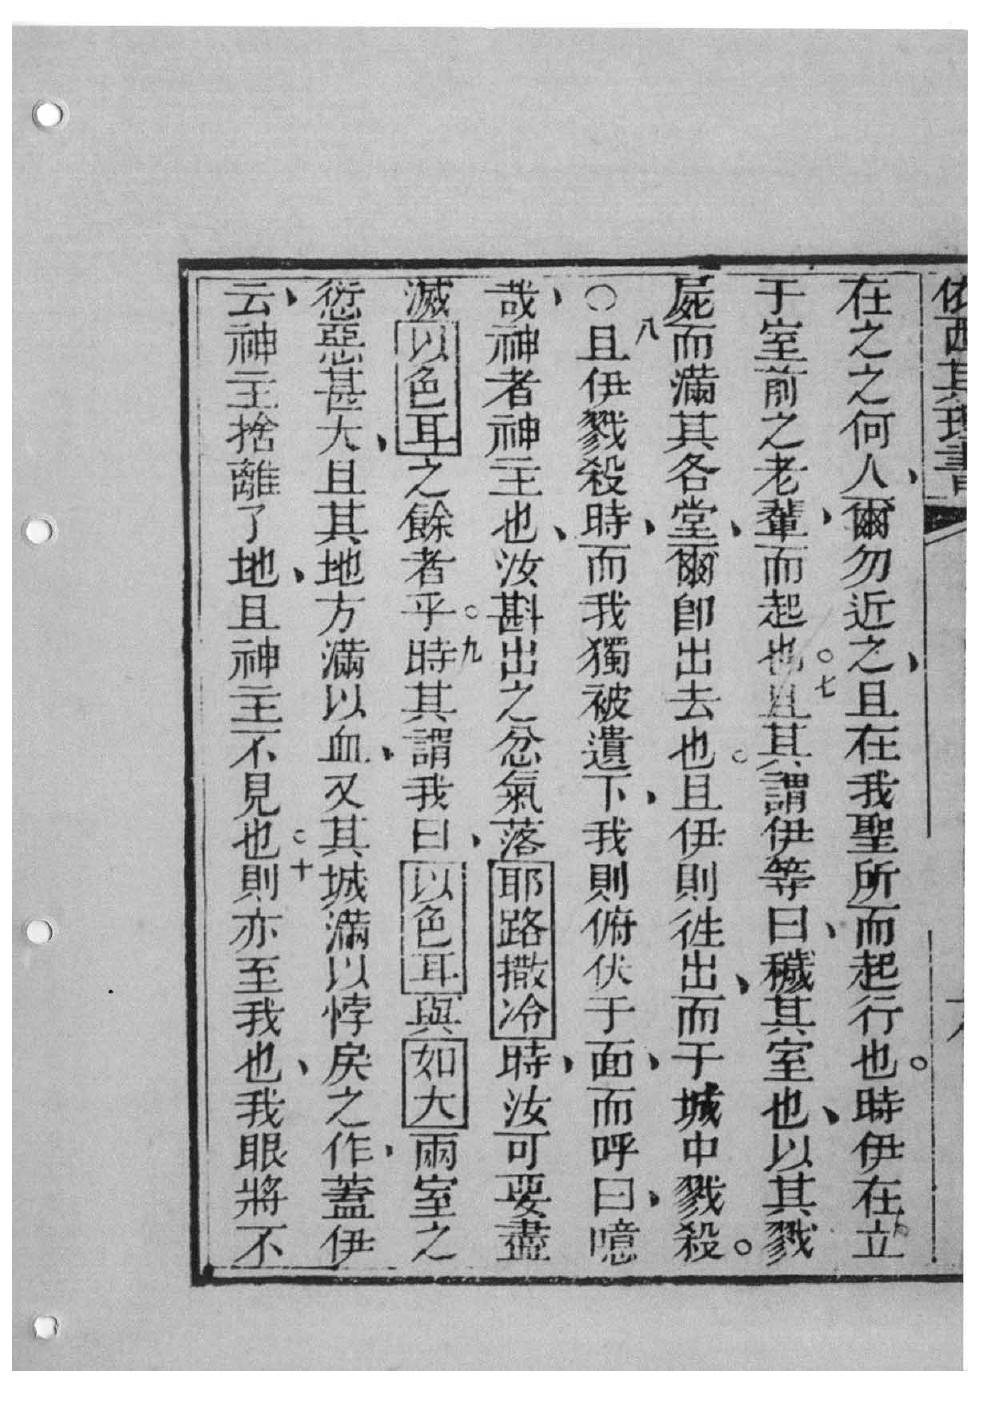 依西其理書
在之之何人、爾勿近之、且在我聖所而起行也。時伊在立
于室前之老輩、而起也。七且其謂伊等曰、穢其室也、以其戮
屍而滿其各堂、爾卽出去也。且伊則徃出、而于城中戮殺。
○八且伊戮殺時、而我獨被遺下、我則俯伏于面、而呼曰、噫
哉、神者神主也、汝斟出之忿氣落耶路撒冷時、汝可要盡
滅以色耳之餘者乎。九時其謂我曰、以色耳與如大兩室之
愆惡甚大、且其地方滿以血、又其城滿以悖戾之作、蓋伊
云、神主捨離了地、且神主不見也。十則亦至我也、我眼將不